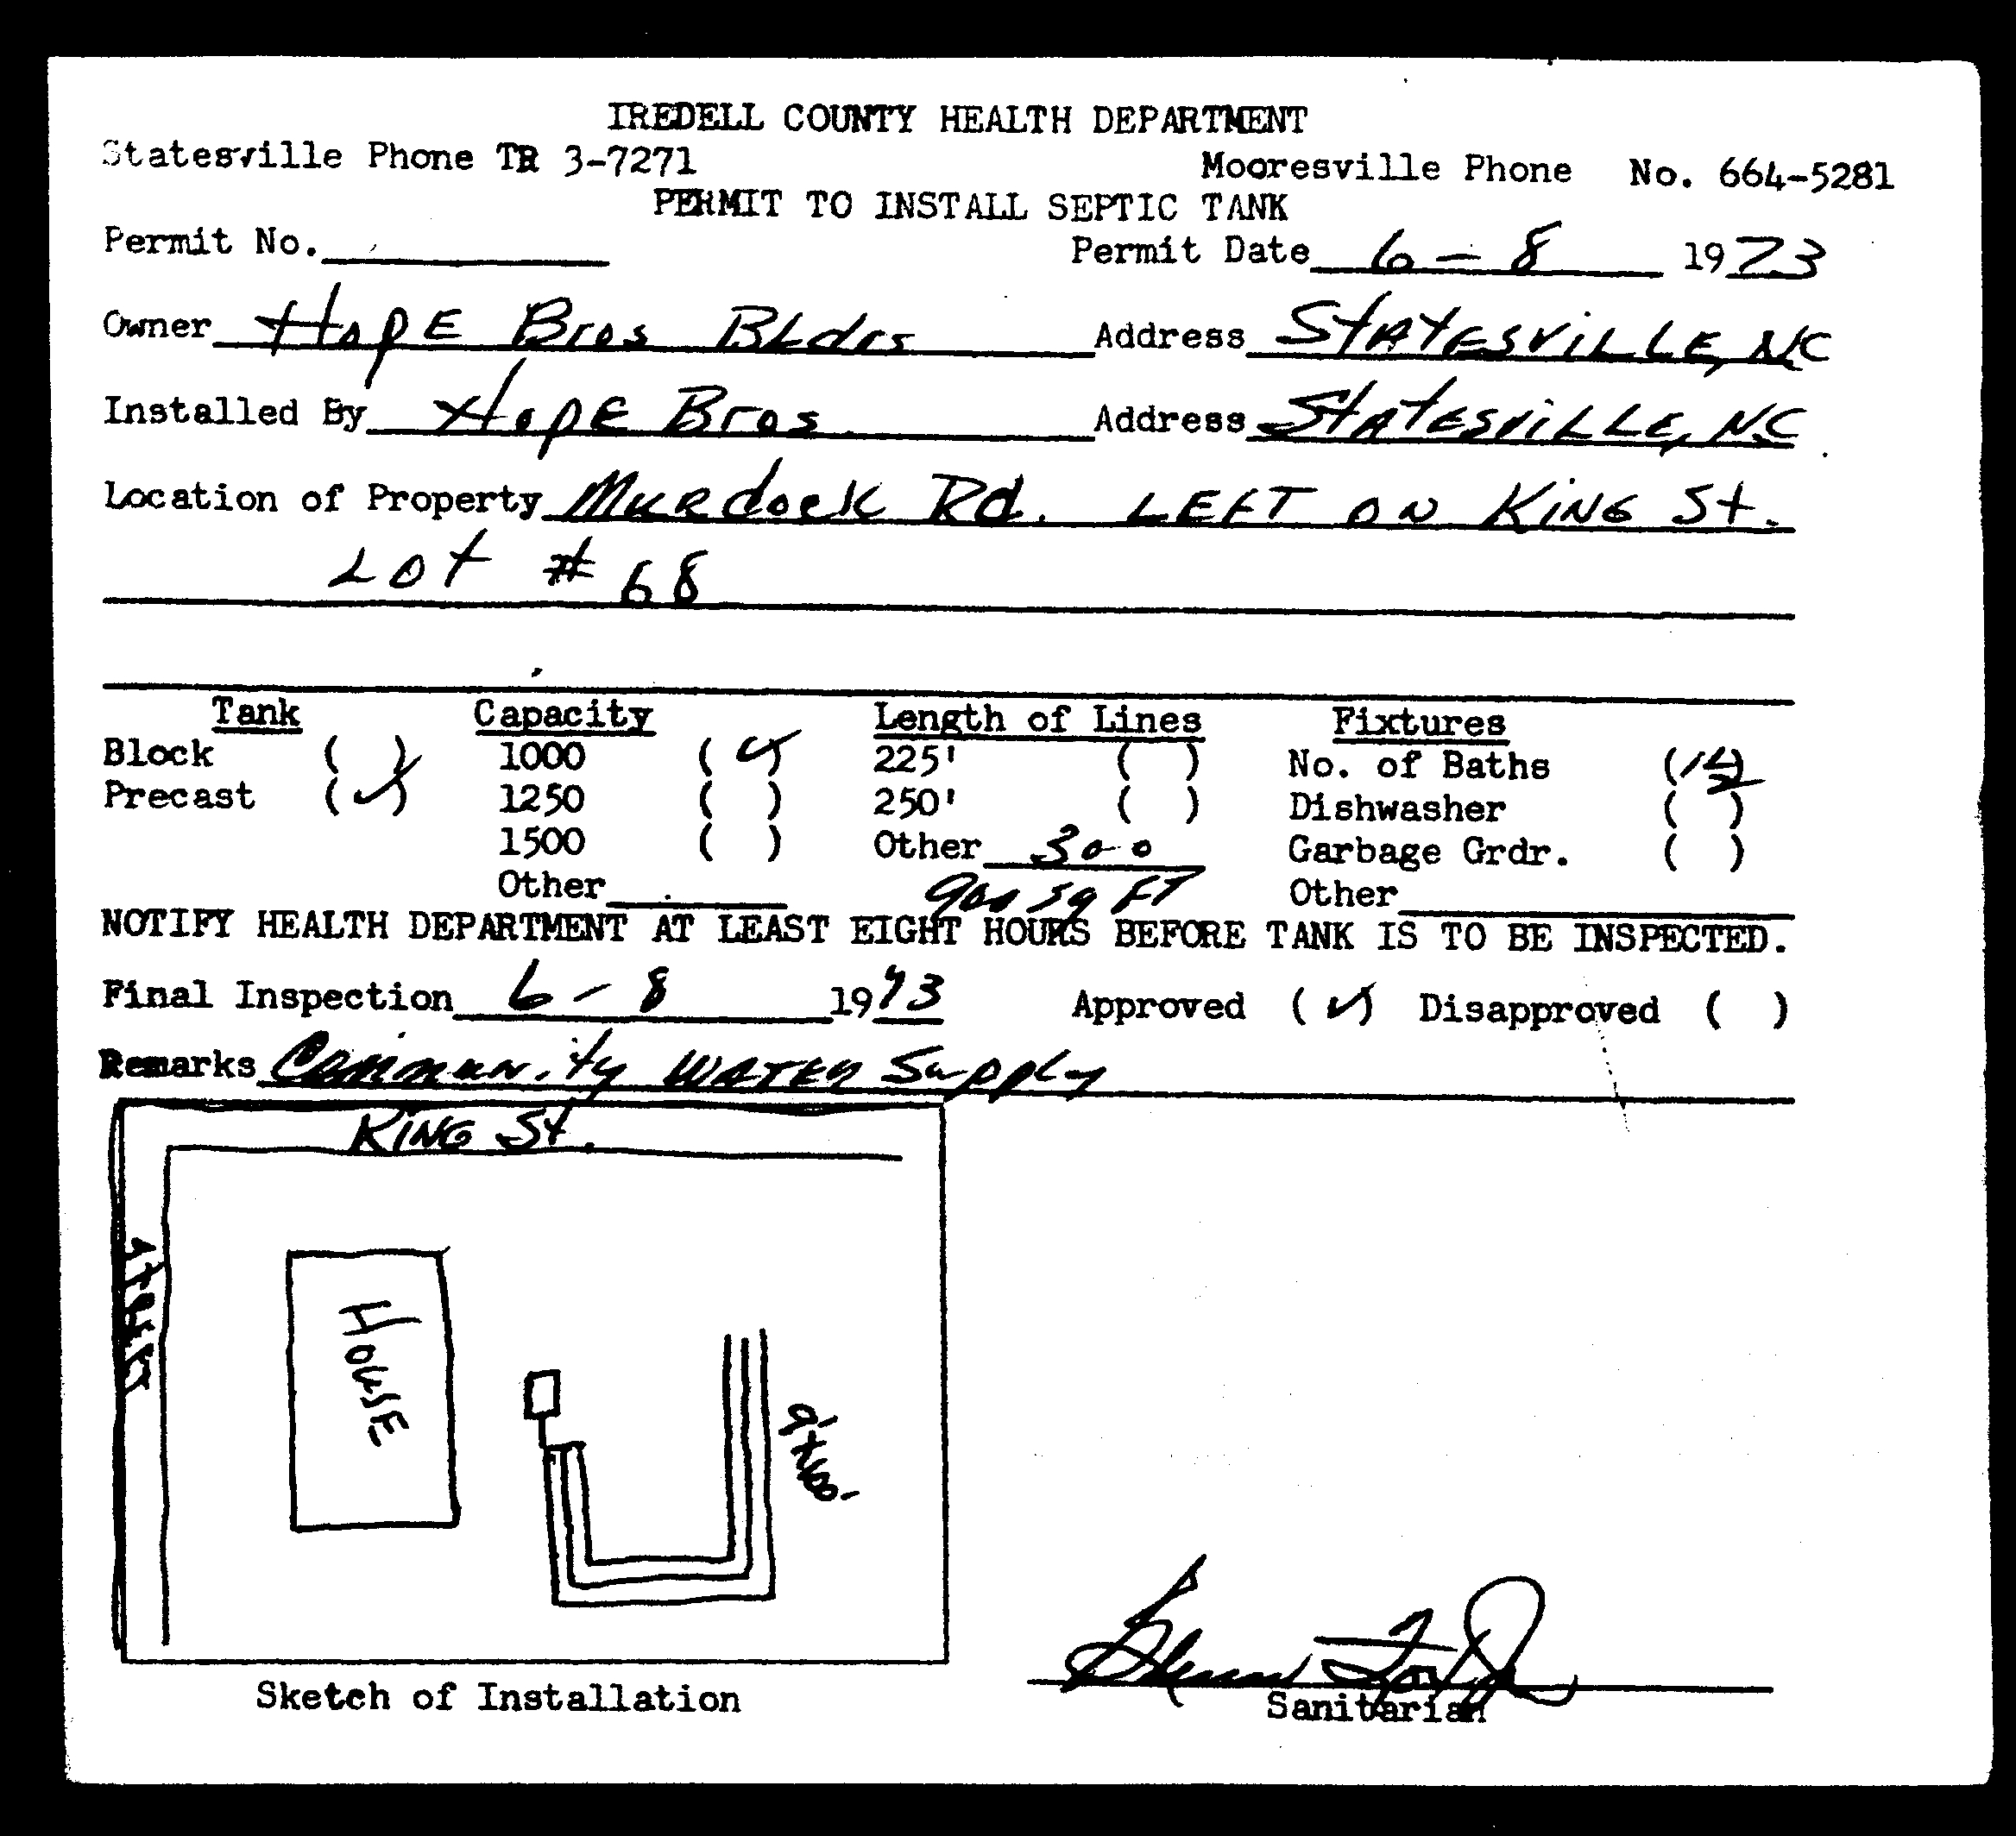 IREDELL COUNTY HEALTH DEPARTMENT
Statesville Phone TR 3-7271 Mooresville Phone No. 664-5281
PERMIT TO INSTALL SEPTIC TANK
Permit No. Permit Date 6 - 8 1973
Owner Hope Bros Bldrs Address Statesville, NC
Installed By Hope Bros. Address Statesville, NC
Location of Property Murdock Rd. Left on King St.
Lot # 68
Tank Capacity Length of Lines Fixtures
Block ( ) 1000 (✓) 225' ( ) No. of Baths (1½)
Precast (✓) 1250 ( ) 250' ( ) Dishwasher ( )
1500 ( ) Other 300 Garbage Grdr. ( )
Other 900 sq FT Other
NOTIFY HEALTH DEPARTMENT AT LEAST EIGHT HOURS BEFORE TANK IS TO BE INSPECTED.
Final Inspection 6 - 8 1973 Approved (✓) Disapproved ( )
Remarks Community Water Supply
King St.
House
Sketch of Installation
Sanitarian